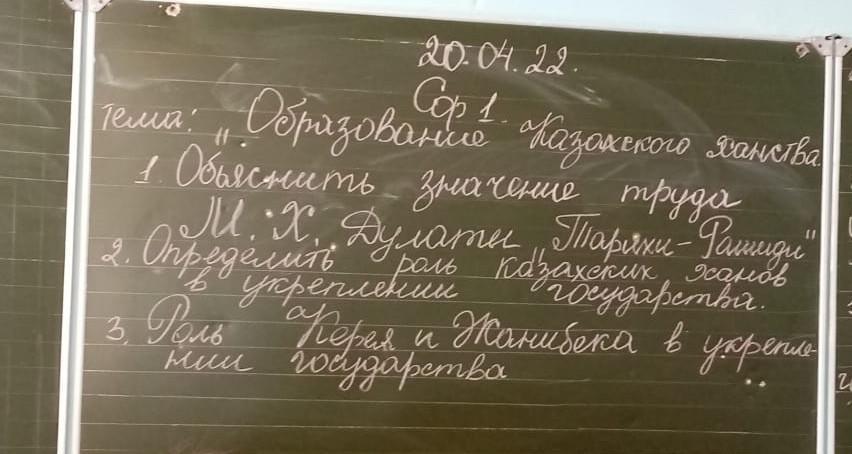 20.04.22.
Сор 1.
Тема: „Образование Казахского ханства.
1. Объяснить значение труда
М. Х. Дулати „Тарихи-Рашиди"
2. Определить роль казахских ханов
в укреплении государства.
3. Роль Керея и Жанибека в укрепле-
нии государства